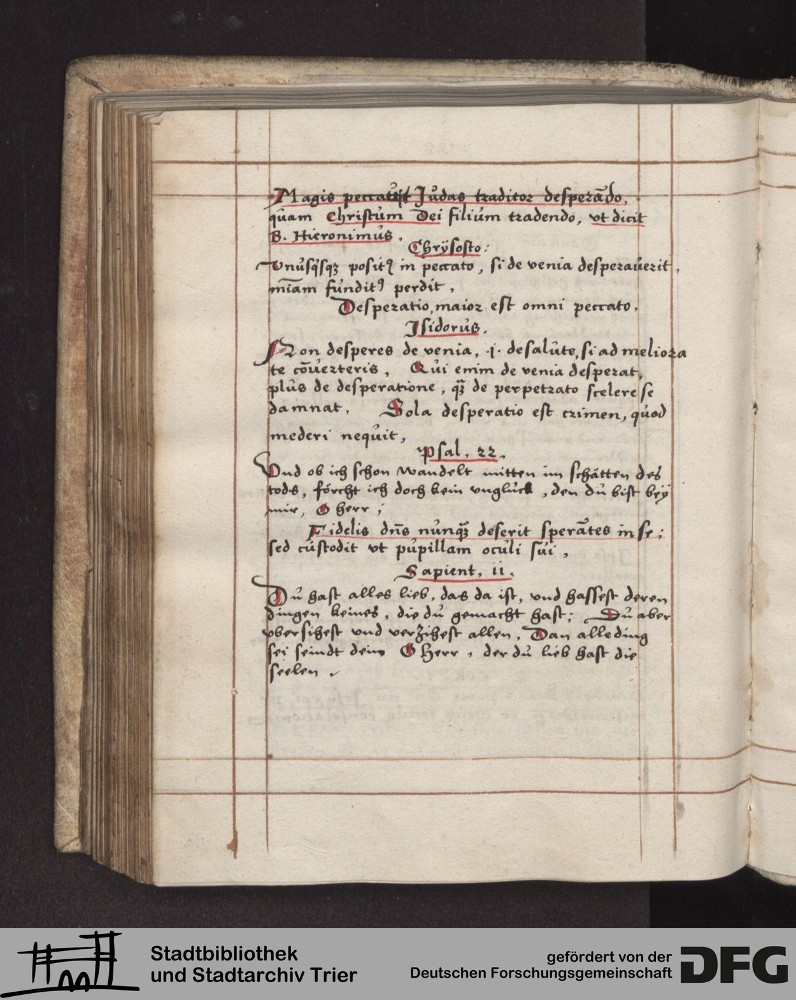 Magis peccauit Judas traditor desperādo,
quam Christum Dei filium tradendo, ut dicit
B. Hieronimus.
Chrÿsosto:
Vnusqsqз positꝰ in peccato, si de venia desperauerit,
miam funditꝰ perdit,
Desperatio, maior est omni peccato.
Isidorus.
Non desperes de venia, .i. de salute, si ad meliora
te cōuerteris, Qui enim de venia desperat,
plus de desperatione, qз de perpetrato scelere se
damnat. Sola desperatio est crimen, quod
mederi nequit,
Psal. 22.
Vnd ob ich schon wandelt mitten im schätten des
tods, förcht ich doch kein vnglück, den du bist beÿ
mir, O herr;
Fidelis dñs nunqз deserit sperātes in se;
sed custodit ut pupillam oculi sui,
Sapient. ii.
Du hast alles lieb, das da ist, vnd hassest deren
dingen keines, die du gemacht hast; Du aber
vbersihest vnd verzihest allen, Dan alle ding
sei seindt dein O Herr, der du lieb hast die
seelen.
Stadtbibliothek
und Stadtarchiv Trier
gefördert von der
Deutschen Forschungsgemeinschaft
DFG